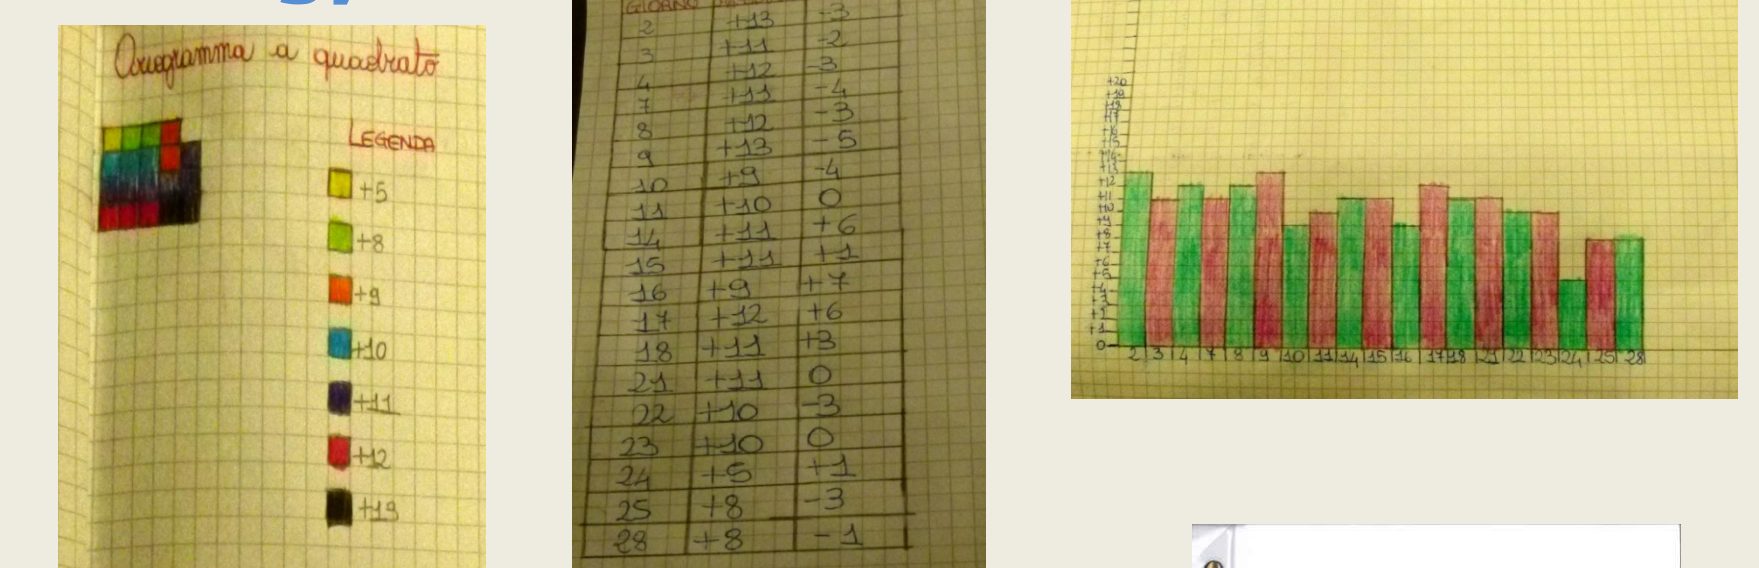 Areogramma a quadrato
LEGENDA
+5
+8
+9
+10
+11
+12
+13
GIORNO
2 +13 -3
3 +11 -2
4 +12 -3
7 +11 -4
8 +12 -3
9 +13 -5
10 +9 -4
11 +10 0
14 +11 +6
15 +11 +1
16 +9 +7
17 +12 +6
18 +11 +3
21 +11 0
22 +10 -3
23 +10 0
24 +5 +1
25 +8 -3
28 +8 -1
+20
+19
+18
+17
+16
+15
+14
+13
+12
+11
+10
+9
+8
+7
+6
+5
+4
+3
+2
+1
0
2 3 4 7 8 9 10 11 14 15 16 17 18 21 22 23 24 25 28